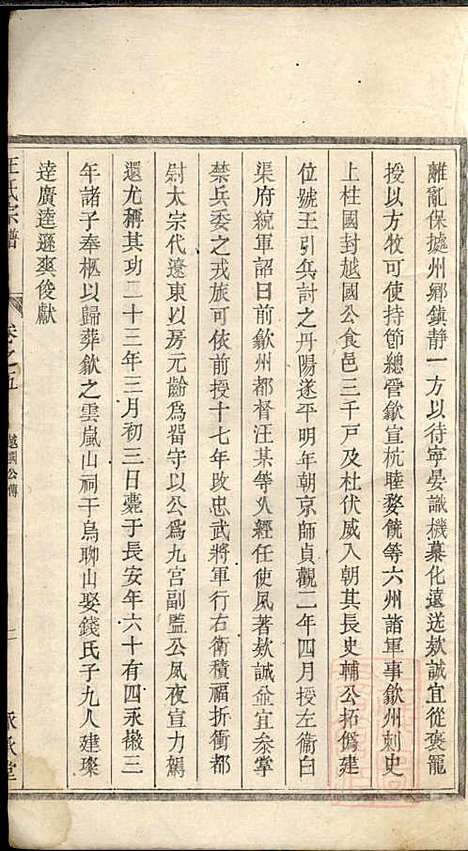 離亂保據州鄉鎮静一方以待寧晏識機慕化遠送欵誠宜從褒寵
授以方牧可使持節總管歙宣杭睦婺饒等六州諸軍事歙州刺史
上柱國封越國公食邑三千戸及杜伏威入朝其長史輔公祏僞建
位號王引兵討之丹陽遂平明年朝京師貞觀二年四月授左衛白
渠府統軍詔曰前歙州都督汪某等久經任使夙著欵誠並宜叅掌
禁兵委之戎旅可依前授十七年改忠武將軍行右衛積福折衝都
尉太宗伐遼東以房元齡爲畱守以公爲九宫副監公夙夜宣力駕
還尤稱其功二十三年三月初三日薨于長安年六十有四永徽三
年諸子奉柩以歸葬歙之雲嵐山祠于烏聊山娶錢氏子九人建璨
逹廣逵遜爽俊獻
汪氏宗譜
卷之五
越國公傳
二